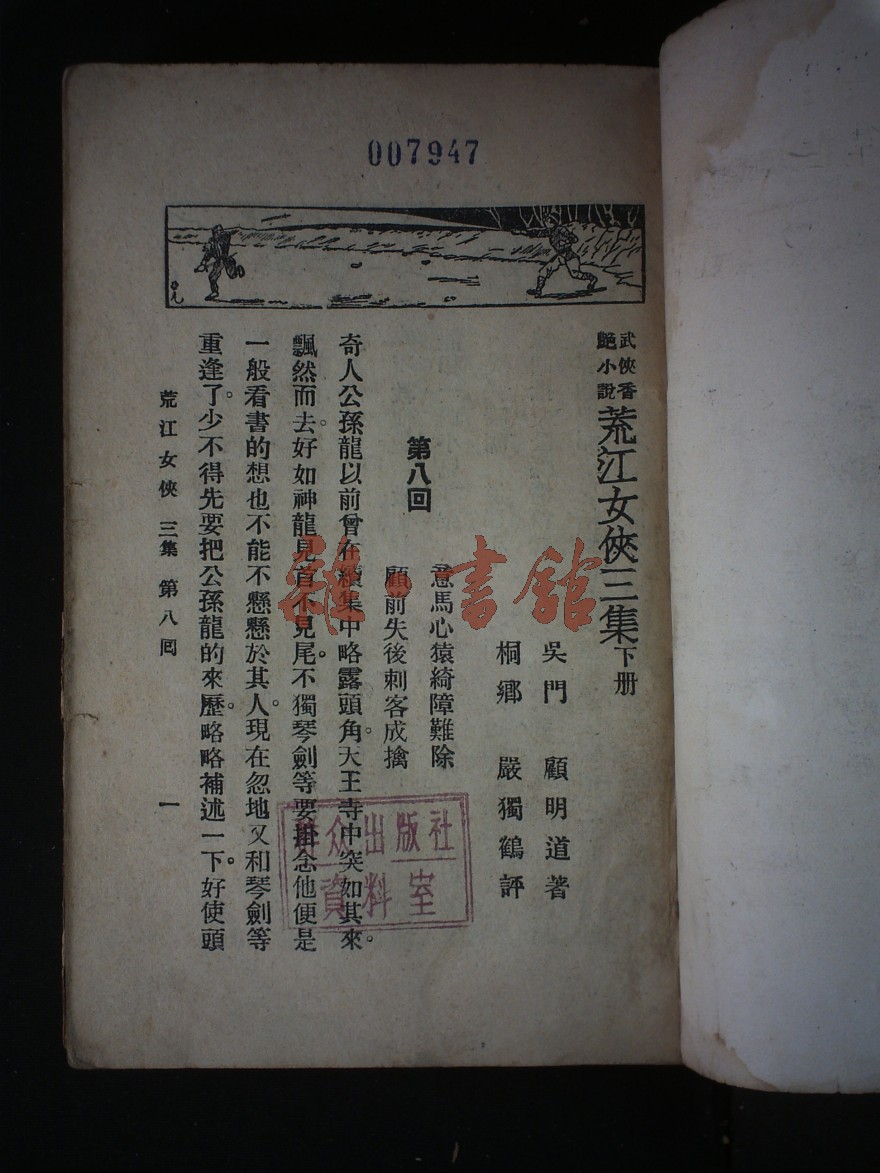 007947
武俠香艷小說 荒江女俠三集 下册
吳門 顧明道著
桐鄉 嚴獨鶴評
第八回
意馬心猿綺障難除
顧前失後刺客成擒
奇人公孫龍以前曾在續集中略露頭角。天王寺中突如其來。
飄然而去。好如神龍見首不見尾。不獨琴劍等要掛念他便是
一般看書的想也不能不懸懸於其人。現在忽地又和琴劍等
重逢了。少不得先要把公孫龍的來歷。略略補述一下。好使頭
荒江女俠 三集 第八回
一
雜·書館
群众出版社
資料室